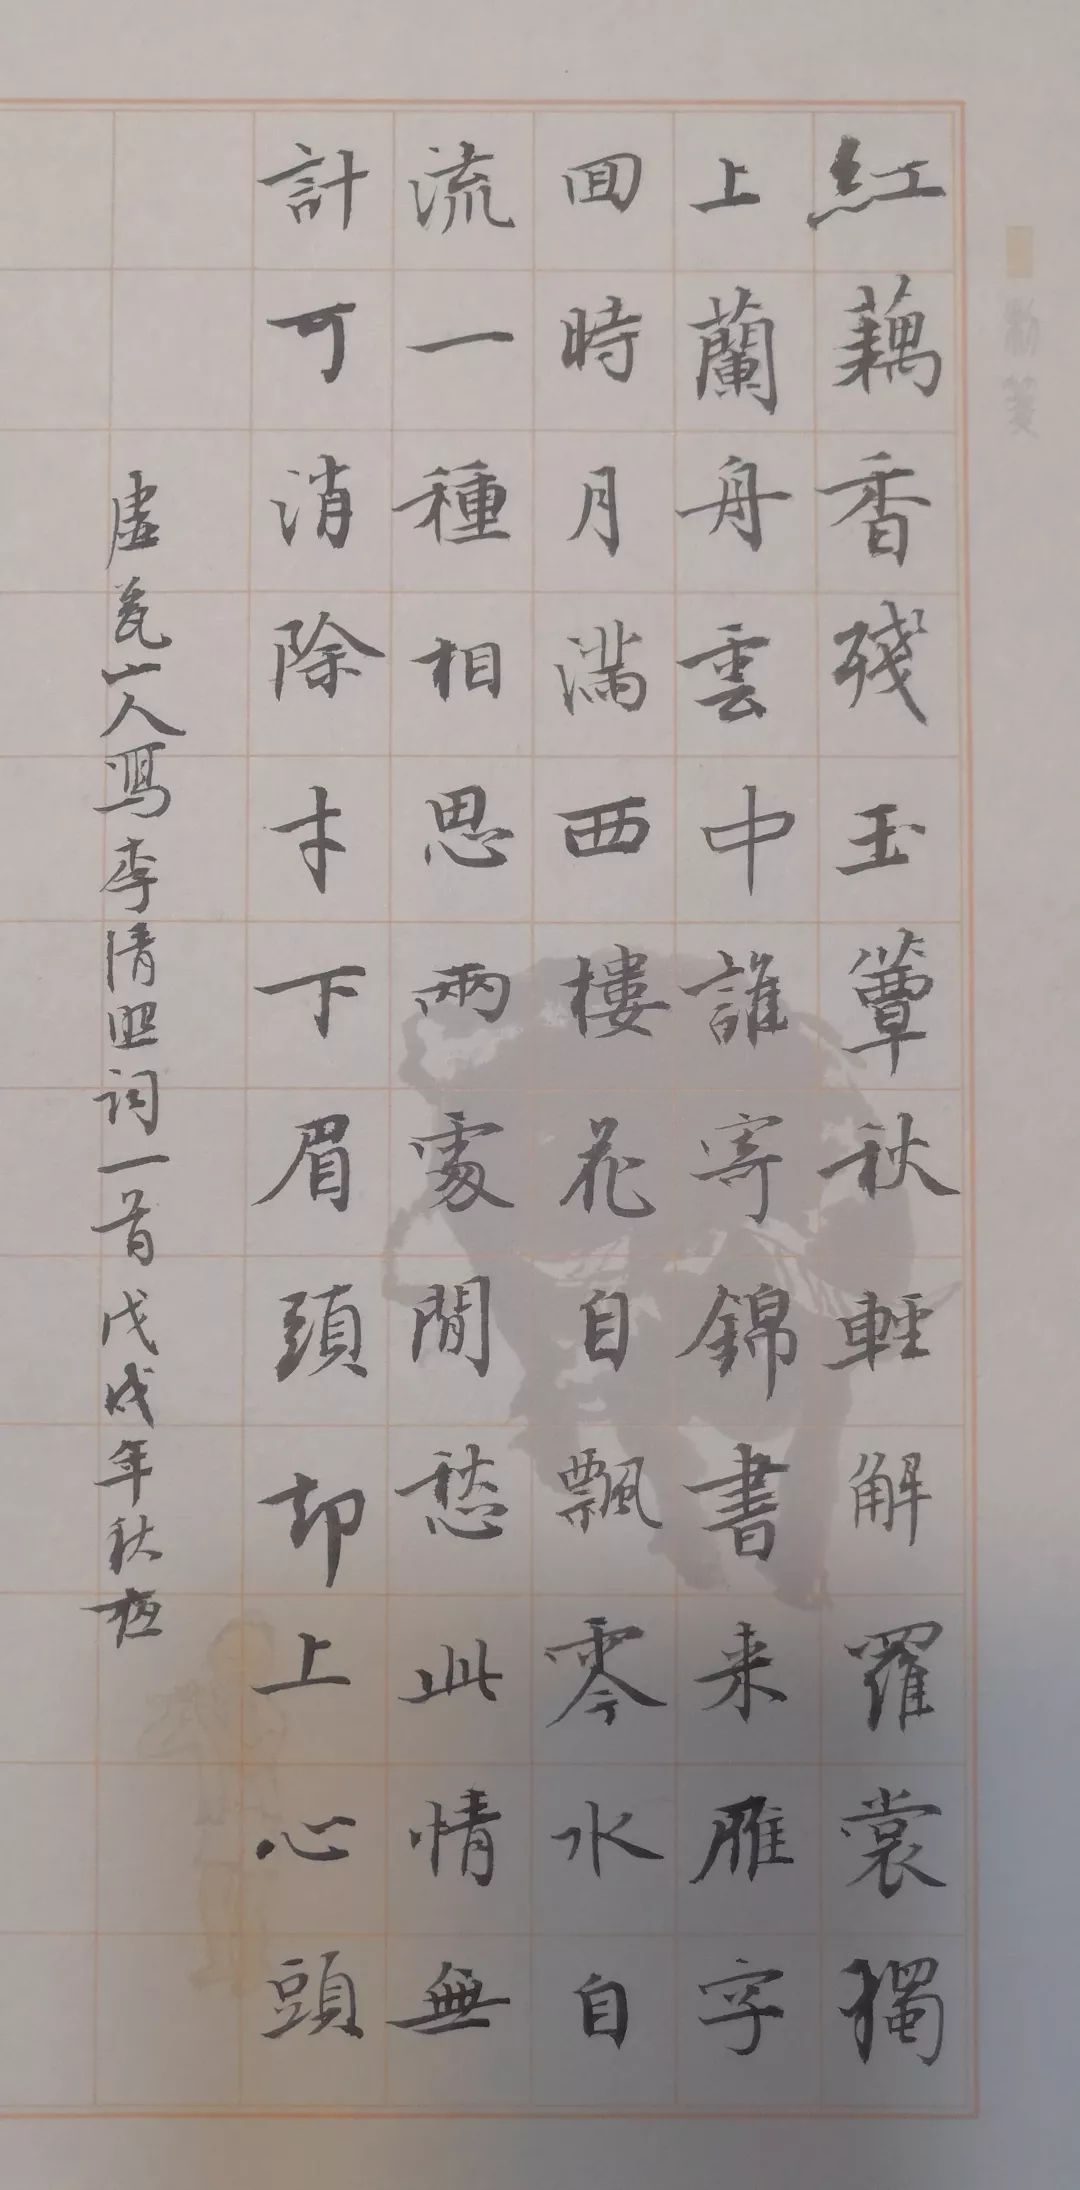 紅藕香殘玉簟秋輕解羅裳獨
上蘭舟雲中誰寄錦書来雁字
回時月滿西樓花自飄零水自
流一種相思兩處閒愁此情無
計可消除才下眉頭却上心頭
虚人写李清照词一首戊戌年秋夜